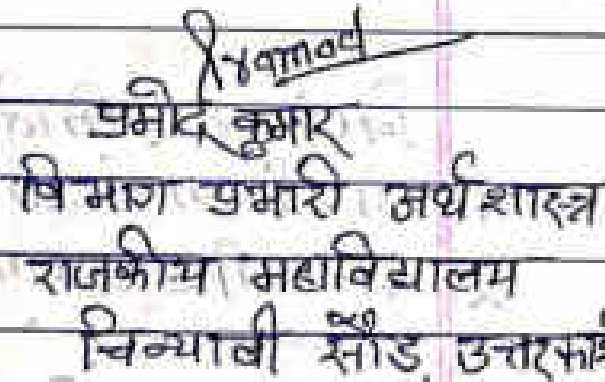 Pramod
प्रमोद कुमार
विभाग प्रभारी अर्थशास्त्र
राजकीय महाविद्यालय
चिन्याली सौड उत्तरकाशी